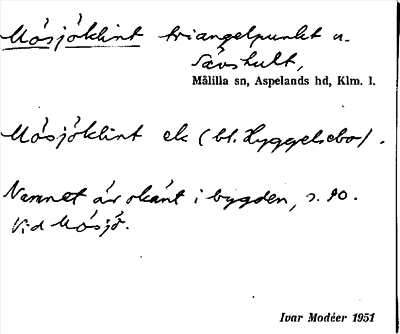 Mósjöklint triangelpunkt n.
Sävshult,
Målilla sn, Aspelands hd, Klm. l.
Mósjöklint ek (bl. Hyggelsebo).
Namnet är okänt i bygden, s. 90.
Vid Mósjö.
Ivar Modéer 1951